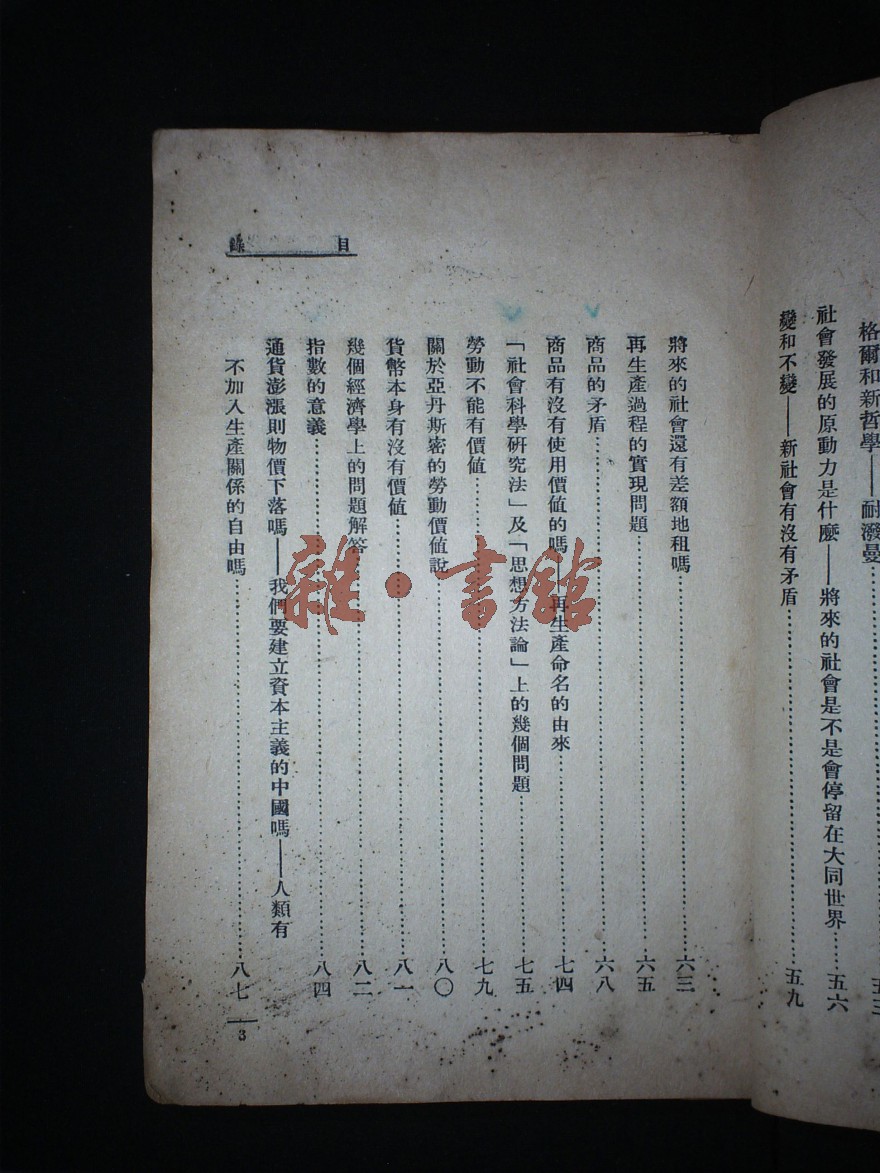 格爾和新哲學——耐潑曼
社會發展的原動力是什麼——將來的社會是不是會停留在大同世界……五六
變和不變——新社會有沒有矛盾……五九
目錄
將來的社會還有差額地租嗎……六三
再生產過程的實現問題……六五
商品的矛盾……六八
商品有沒有使用價值的嗎 再生產命名的由來……七四
「社會科學研究法」及「思想方法論」上的幾個問題……七五
勞動不能有價值……七九
關於亞丹斯密的勞動價値說……八〇
貨幣本身有沒有價値……八一
幾個經濟學上的問題解答……八二
指數的意義……八四
通貨澎漲則物價下落嗎——我們要建立資本主義的中國嗎——人類有
不加入生產關係的自由嗎……八七
3
雜·書館